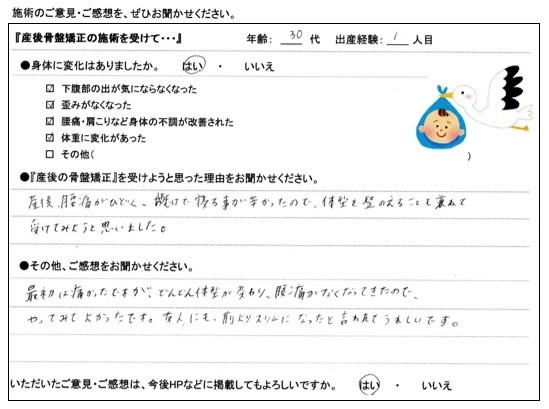 施術のご意見・ご感想を、ぜひお聞かせください。
『産後骨盤矯正の施術を受けて・・・』 年齢: 30 代 出産経験: 1 人目
●身体に変化はありましたか。 はい ・ いいえ
☑ 下腹部の出が気にならなくなった
☑ 歪みがなくなった
☑ 腰痛・肩こりなど身体の不調が改善された
☑ 体重に変化があった
□ その他( )
●『産後の骨盤矯正』を受けようと思った理由をお聞かせください。
産後、腰痛がひどく、仰向けで寝る事が辛かったので、体型を整のえることも兼ねて
受けてみようと思いました。
●その他、ご感想をお聞かせください。
最初は痛かったですが、どんどん体型が変わり、腰痛がなくなってきたので、
やってみてよかったです。友人にも、前よりスリムになったと言われてうれしいです。
いただいたご意見・ご感想は、今後HPなどに掲載してもよろしいですか。 はい ・ いいえ